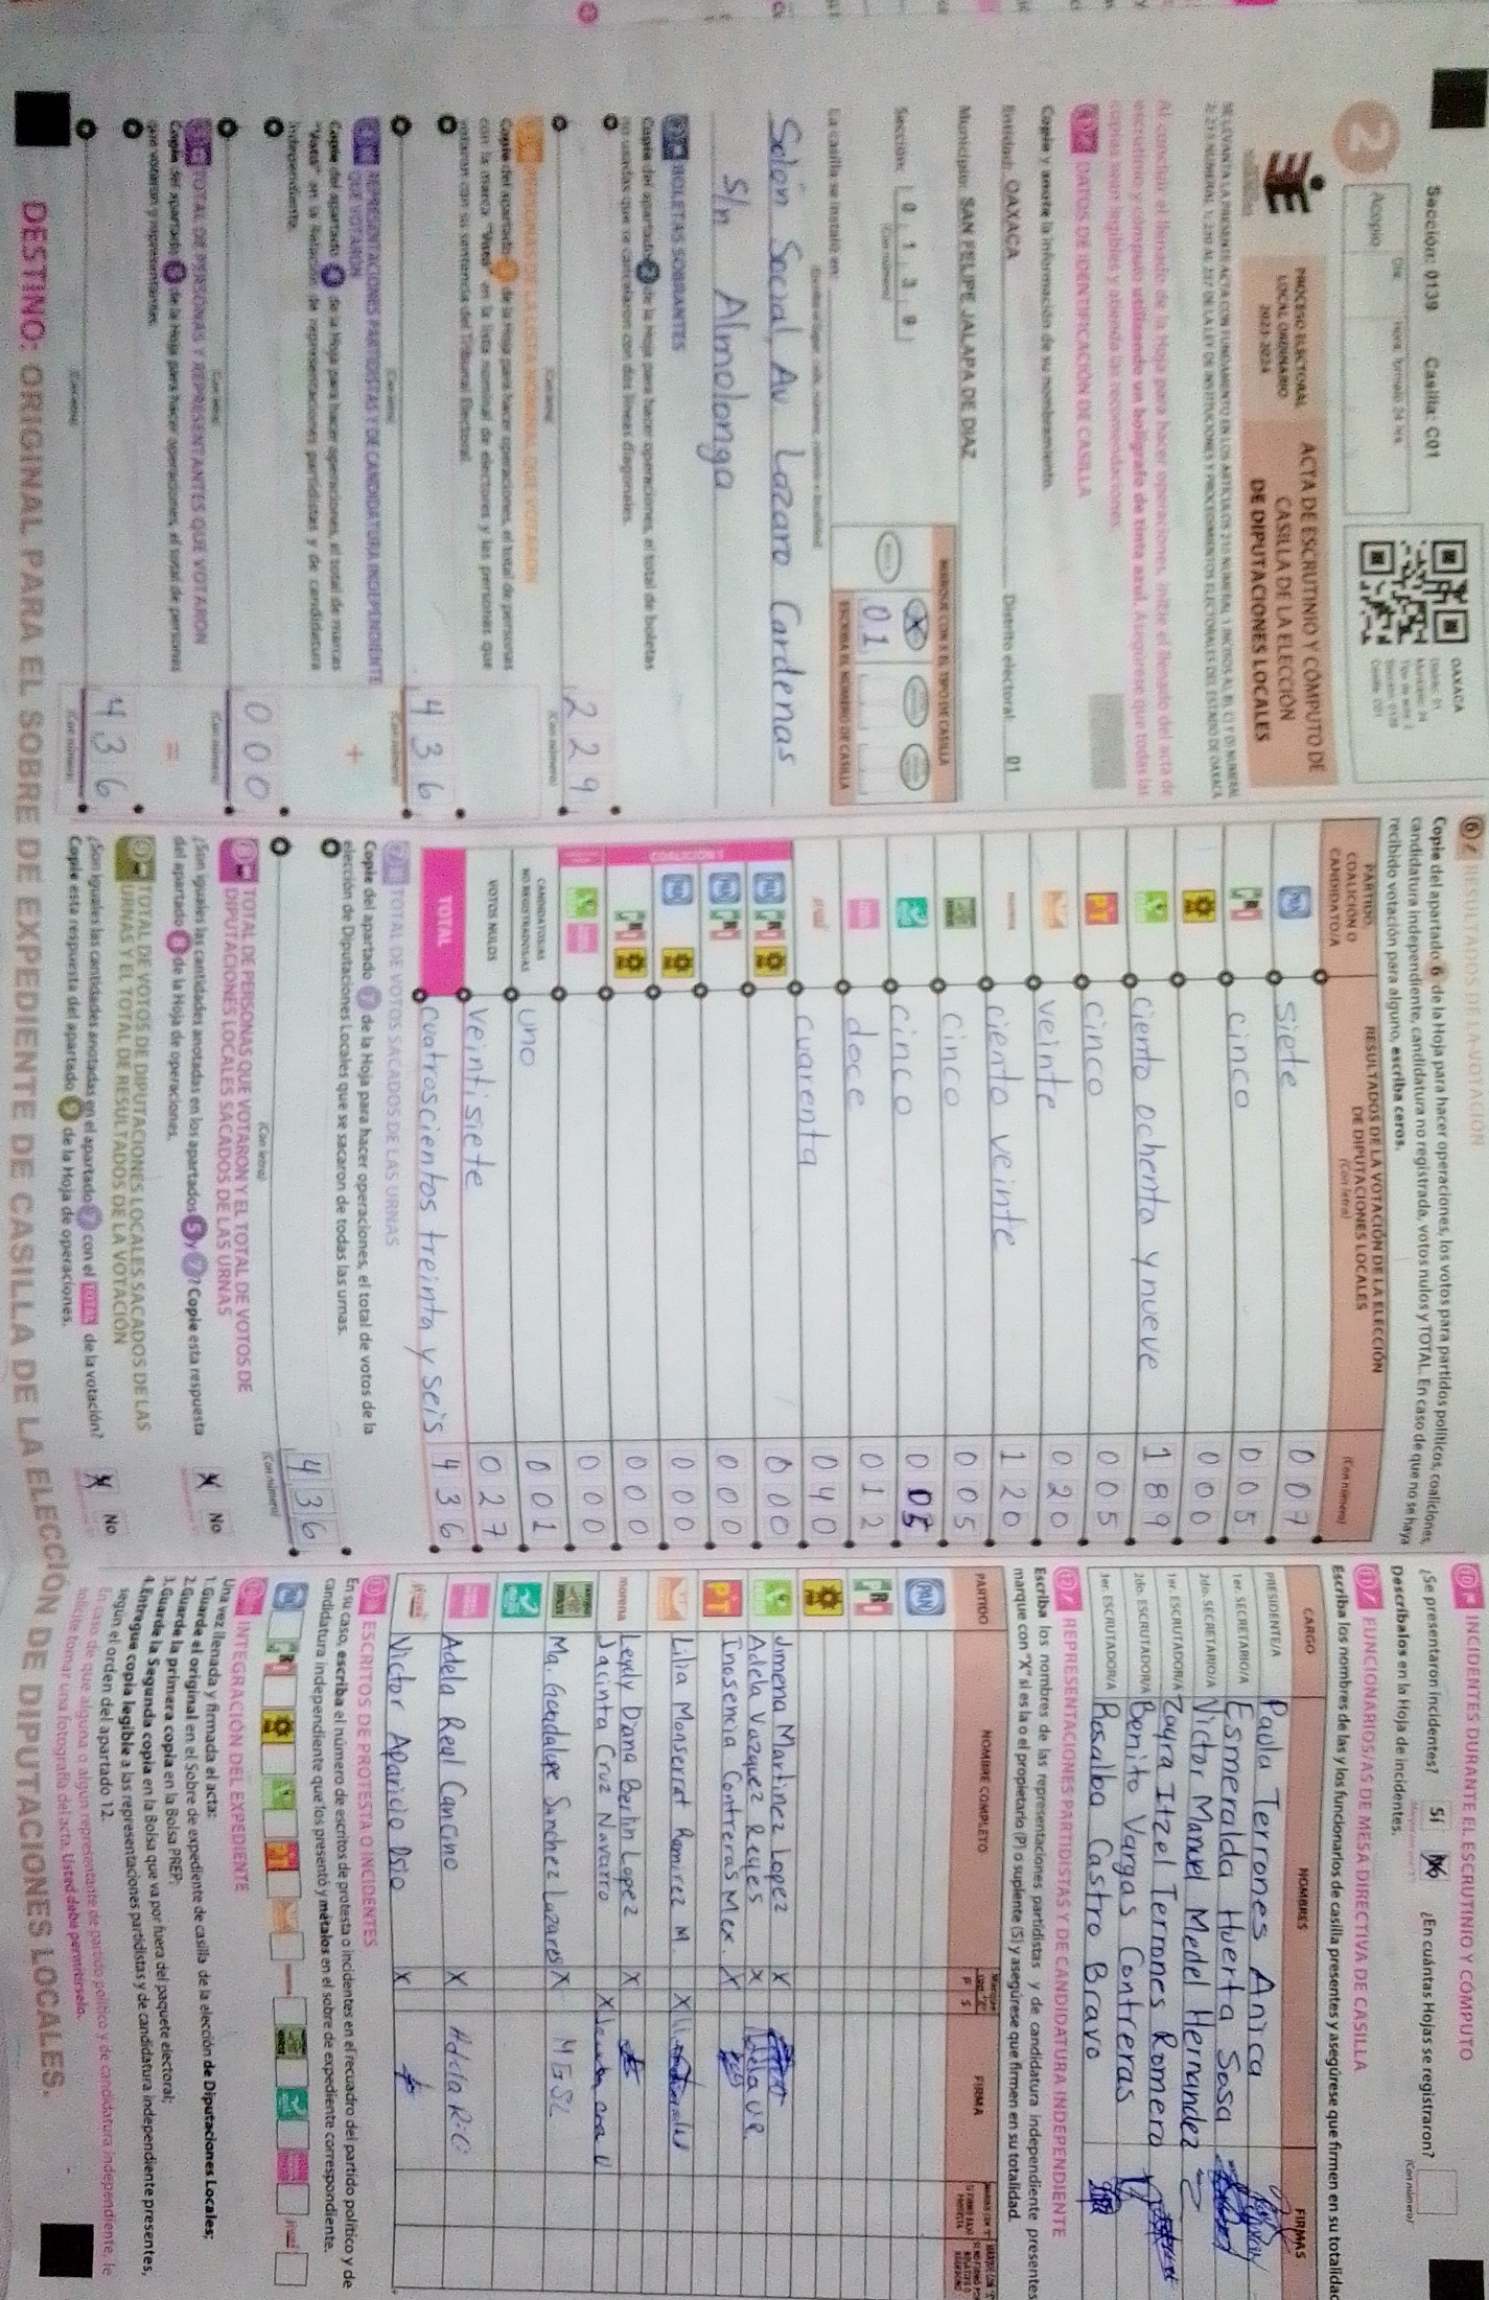 Sección: 0139 Casilla: C01
Acopio
Día
Hora formato 24 hrs
OAXACA
PROCESO ELECTORAL
LOCAL ORDINARIO
2023-2024
ACTA DE ESCRUTINIO Y CÓMPUTO DE
CASILLA DE LA ELECCIÓN
DE DIPUTACIONES LOCALES
Al concluir el llenado de la Hoja para hacer operaciones, inicie el llenado del acta de
escrutinio y cómputo utilizando un bolígrafo de tinta azul. Asegúrese que todas las
copias sean legibles y atienda las recomendaciones.
DATOS DE IDENTIFICACIÓN DE CASILLA
Copie y anote la información de su nombramiento.
Entidad: OAXACA Distrito electoral: 01
Municipio: SAN FELIPE JALAPA DE DIAZ
Sección: 0 1 3 9
(Con número)
MARQUE CON X EL TIPO DE CASILLA
X
ESCRIBA EL NÚMERO DE CASILLA
01
La casilla se instaló en:
Salon Social, Av Lazaro Cardenas
S/n Almolonga
BOLETAS SOBRANTES
Copie del apartado 2 de la Hoja para hacer operaciones, el total de boletas
no usadas que se cancelaron con dos líneas diagonales.
229
(Con número)
PERSONAS DE LA LISTA NOMINAL QUE VOTARON
Copie del apartado 3 de la Hoja para hacer operaciones, el total de personas
con la marca "Votó" en la lista nominal de electores y las personas que
votaron con su sentencia del Tribunal Electoral.
436
(Con número)
REPRESENTACIONES PARTIDISTAS Y DE CANDIDATURA INDEPENDIENTE
QUE VOTARON
Copie del apartado 4 de la Hoja para hacer operaciones, el total de marcas
"Votó" en la Relación de representaciones partidistas y de candidatura
independiente.
+
000
(Con número)
TOTAL DE PERSONAS Y REPRESENTANTES QUE VOTARON
Copie del apartado 5 de la Hoja para hacer operaciones, el total de personas
que votaron y representantes.
=
436
(Con número)
6 RESULTADOS DE LA VOTACIÓN
Copie del apartado 6 de la Hoja para hacer operaciones, los votos para partidos políticos, coaliciones,
candidatura independiente, candidatura no registrada, votos nulos y TOTAL. En caso de que no se haya
recibido votación para alguno, escriba ceros.
PARTIDO, COALICIÓN O CANDIDATO/A
RESULTADOS DE LA VOTACIÓN DE LA ELECCIÓN
DE DIPUTACIONES LOCALES
(Con letra)
(Con número)
PAN siete 007
PRI cinco 005
000
ciento ochenta y nueve 189
PT cinco 005
veinte 020
ciento veinte 120
cinco 005
cinco 005
doce 012
cuarenta 040
COALICIÓN 1
PAN PRI 000
PAN PRI 000
PAN 000
PRI 000
000
CANDIDATOS/AS
NO REGISTRADOS/AS
uno 001
VOTOS NULOS veintisiete 027
TOTAL cuatroscientos treinta y seis 436
TOTAL DE VOTOS SACADOS DE LAS URNAS
Copie del apartado 7 de la Hoja para hacer operaciones, el total de votos de la
elección de Diputaciones Locales que se sacaron de todas las urnas.
436
(Con letra)
(Con número)
TOTAL DE PERSONAS QUE VOTARON Y EL TOTAL DE VOTOS DE
DIPUTACIONES LOCALES SACADOS DE LAS URNAS
¿Son iguales las cantidades anotadas en los apartados 5 y 7? Copie esta respuesta
del apartado 8 de la Hoja de operaciones.
X No
TOTAL DE VOTOS DE DIPUTACIONES LOCALES SACADOS DE LAS
URNAS Y EL TOTAL DE RESULTADOS DE LA VOTACIÓN
¿Son iguales las cantidades anotadas en el apartado 7 con el TOTAL de la votación?
Copie esta respuesta del apartado 9 de la Hoja de operaciones.
X No
INCIDENTES DURANTE EL ESCRUTINIO Y CÓMPUTO
¿Se presentaron incidentes? Sí No ¿En cuántas Hojas se registraron?
(Con número)
Descríbalos en la Hoja de incidentes.
FUNCIONARIOS/AS DE MESA DIRECTIVA DE CASILLA
Escriba los nombres de las y los funcionarios de casilla presentes y asegúrese que firmen en su totalidad
CARGO NOMBRES FIRMAS
PRESIDENTE/A Paula Terrones Anica
1er. SECRETARIO/A Esmeralda Huerta Sosa
2do. SECRETARIO/A Victor Manuel Medel Hernandez
1er. ESCRUTADOR/A Zayra Itzel Terrones Romero
2do. ESCRUTADOR/A Benito Vargas Contreras
3er. ESCRUTADOR/A Rosalba Castro Bravo
REPRESENTACIONES PARTIDISTAS Y DE CANDIDATURA INDEPENDIENTE
Escriba los nombres de las representaciones partidistas y de candidatura independiente presentes
marque con "X" si es la o el propietario (P) o suplente (S) y asegúrese que firmen en su totalidad.
PARTIDO NOMBRE COMPLETO P S FIRMA
PAN
PRI
Jimena Martinez Lopez X
Adela Vazquez Reyes X Adela V.R.
PT Inosencia Contreras Mex. X
Lilia Monserret Ramirez M. X
morena Leydy Diana Berlin Lopez X
Jacinta Cruz Navarro X
Ma. Guadalupe Sanchez Lazares X MGSL
Adela Real Cancino X Adela R.C
Victor Aparicio Osio X
ESCRITOS DE PROTESTA O INCIDENTES
En su caso, escriba el número de escritos de protesta o incidentes en el recuadro del partido político y de
candidatura independiente que los presentó y métalos en el sobre de expediente correspondiente.
INTEGRACIÓN DEL EXPEDIENTE
Una vez llenada y firmada el acta:
1. Guarde el original en el Sobre de expediente de casilla de la elección de Diputaciones Locales;
2. Guarde la primera copia en la Bolsa PREP;
3. Guarde la Segunda copia en la Bolsa que va por fuera del paquete electoral;
4. Entregue copia legible a las representaciones partidistas y de candidatura independiente presentes,
según el orden del apartado 12.
En caso de que alguna o algún representante de partido político y de candidatura independiente, le
solicite tomar una fotografía del acta. Usted debe permitírselo.
DESTINO: ORIGINAL PARA EL SOBRE DE EXPEDIENTE DE CASILLA DE LA ELECCIÓN DE DIPUTACIONES LOCALES.